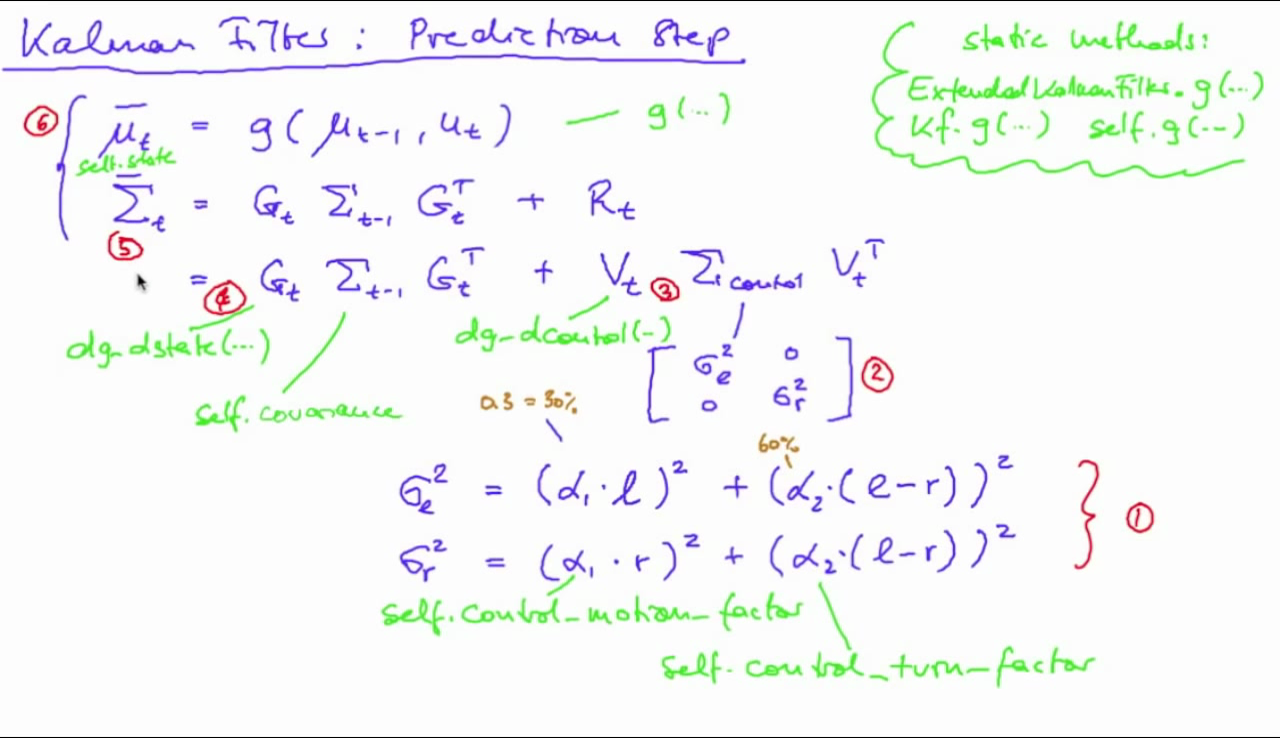 Kalman Filter: Prediction Step
static methods:
ExtendedKalmanFilter.g(...)
Kf.g(...) self.g(...)
⑥ μ̄ₜ = g(μₜ₋₁, uₜ) — g(...)
self.state
Σ̄ₜ = Gₜ Σₜ₋₁ Gₜᵀ + Rₜ
⑤
= ④ Gₜ Σₜ₋₁ Gₜᵀ + Vₜ ③ Σcontrol Vₜᵀ
dg_dstate(...)
dg_dcontrol(-)
self.covariance
[ σₑ² 0
0 σᵣ² ] ②
0.3 = 30%
60%
σₑ² = (α₁·l)² + (α₂·(l-r))²
σᵣ² = (α₁·r)² + (α₂·(l-r))² } ①
self.control_motion_factor
self.control_turn_factor